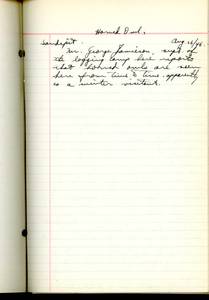 Horned Owl.
Sandspit Aug. 16/46.
Mr. George Jamieson, supt. of
the logging camp here reports
that horned owls are seen
here from time to time, apparently
as a winter visitant.